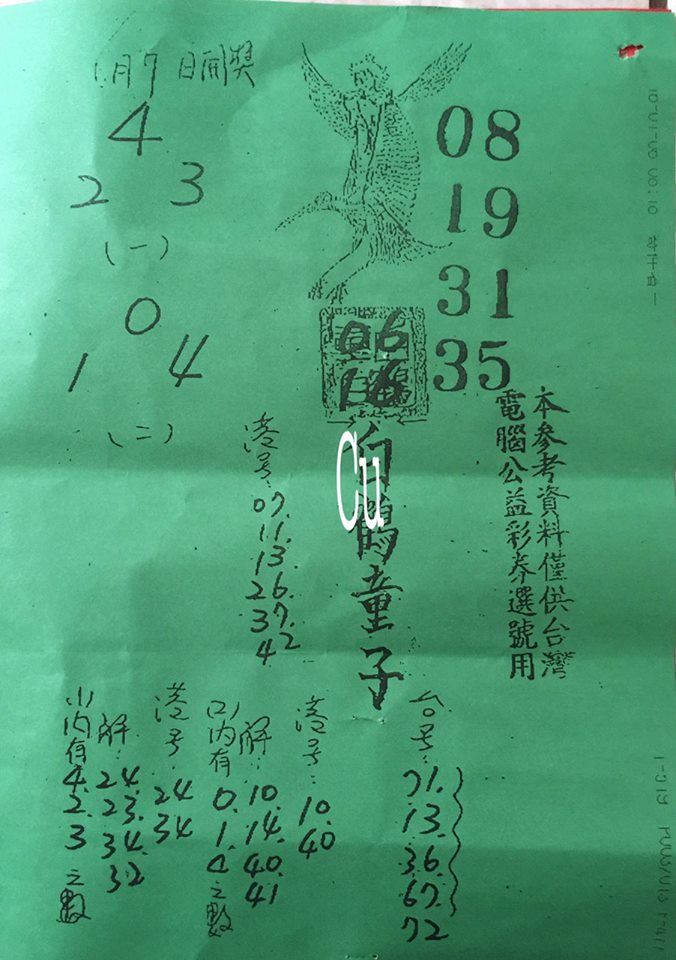 1月7日開獎
4
2 3
(一)
0
1 4
(二)
08
19
31
35
06
16
白鶴童子
Cu
本參考資料僅供台灣
電腦公益彩券選號用
港号:
07.
11.
13.
26.
37.
42
(1)內有
4.
2.
3
之數
解:
24.
23.
34.
32
港号:
24
34
(2)內有
0.
1.
4
之數
解:
10.
14.
40.
41
港号:
10.
40
台号:
71.
13.
36.
67.
72